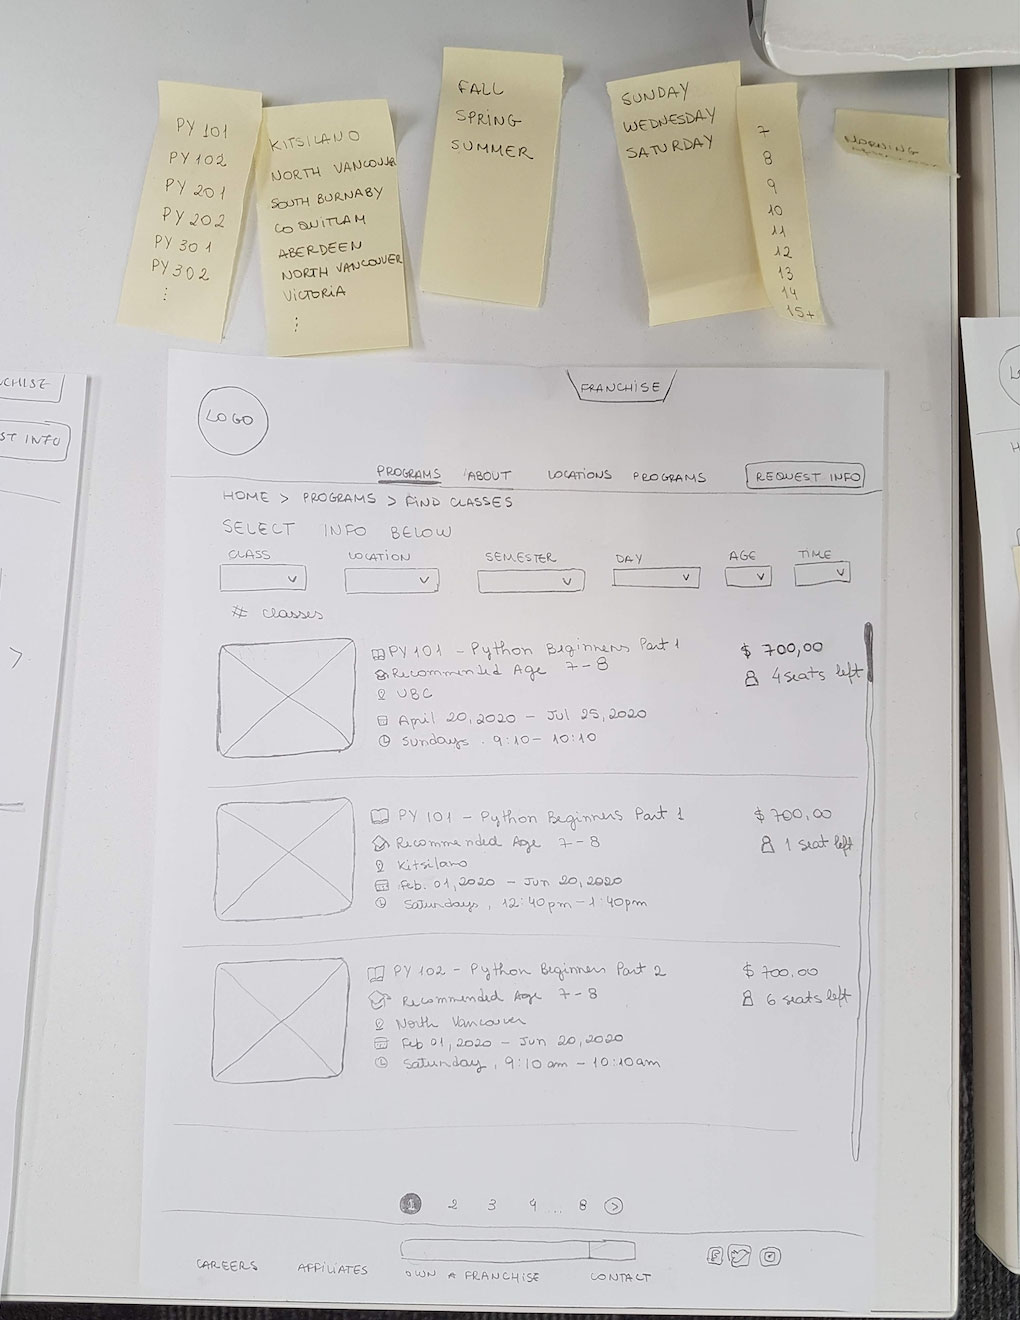 PY 101
PY 102
PY 201
PY 202
PY 301
PY 302
KITSILANO
NORTH VANCOUVER
SOUTH BURNABY
COQUITLAM
ABERDEEN
NORTH VANCOUVER
VICTORIA
FALL
SPRING
SUMMER
SUNDAY
WEDNESDAY
SATURDAY
7
8
9
10
11
12
13
14
15+
MORNING
ST INFO
FRANCHISE
LOGO
PROGRAMS ABOUT LOCATIONS PROGRAMS REQUEST INFO
HOME > PROGRAMS > FIND CLASSES
SELECT INFO BELOW
CLASS LOCATION SEMESTER DAY AGE TIME
# classes
PY 101 - Python Beginners Part 1 $ 700,00
Recommended Age 7-8 4 seats left
UBC
April 20, 2020 - Jul 25, 2020
Sundays . 9:10 - 10:10
PY 101 - Python Beginners Part 1 $ 700,00
Recommended Age 7-8 1 seat left
Kitsilano
Feb. 01, 2020 - Jun 20, 2020
Saturdays, 12:40pm - 1:40pm
PY 102 - Python Beginners Part 2 $ 700,00
Recommended Age 7-8 6 seats left
North Vancouver
Feb 01, 2020 - Jun 20, 2020
Saturday, 9:10 am - 10:10am
1 2 3 4 ... 8 >
CAREERS AFFILIATES OWN A FRANCHISE CONTACT